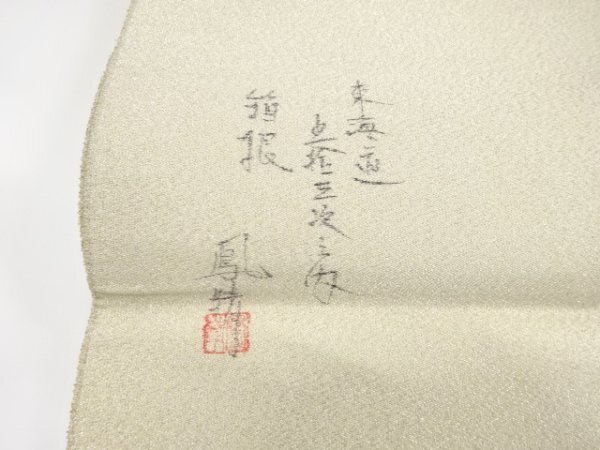 東海道
五拾三次之内
箱根
鳳